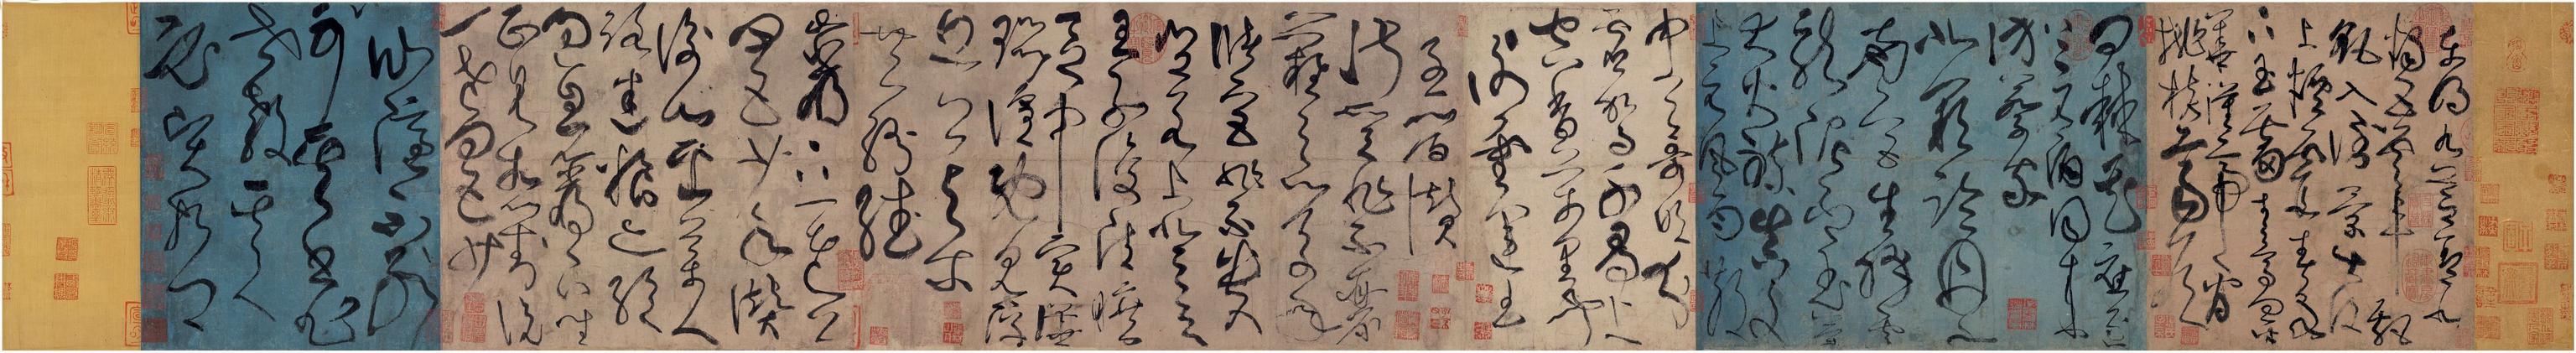 東明九芝蓋北
燭五雲車飄
飖入倒景出沒
上煙霞春泉
下玉霤青鳥向金
華漢帝看
桃核齊侯
問棘花應
逐上元酒同來
訪蔡家
北闕臨丹水
南宮生絳雲
龍泥印玉簡
大火煉真文
上元風雨散
中天哥吹分
虛駕千尋上
空香萬里聞
謝靈運王
子晉贊
淑質非不麗
難之以萬年
儲宮非不貴
豈若上登天
王子復清曠
區中實譁囂
喧既見浮
丘公與爾
共紛繙
巖下一老公
四五少年贊
衡山採藥人
路迷糧亦絕
過息巖下坐
正見相對說
一老四五少
仙隱不別
可其書非
世教其人
必賢哲